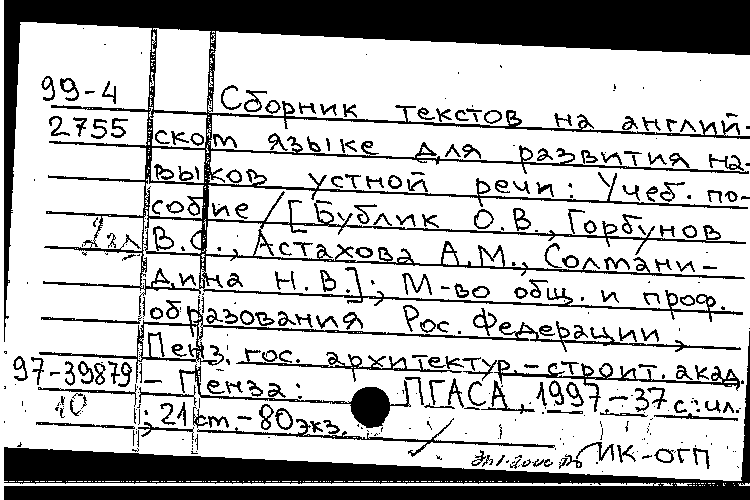 99-4 Сборник текстов на англий-
2755 ском языке для развития на-
выков устной речи: Учеб. по-
собие / [Бублик О.В., Горбунов
2эк В.С., Астахова А.М., Солтани-
дина Н.В.]; М-во общ. и проф.
образования Рос. Федерации,
Пенз. гос. архитектур.-строит. акад.
97-39879 - Пенза: ПГАСА, 1997.-37 с.: ил.
10 ; 21 ст.- 80экз.
ИК-ОГП